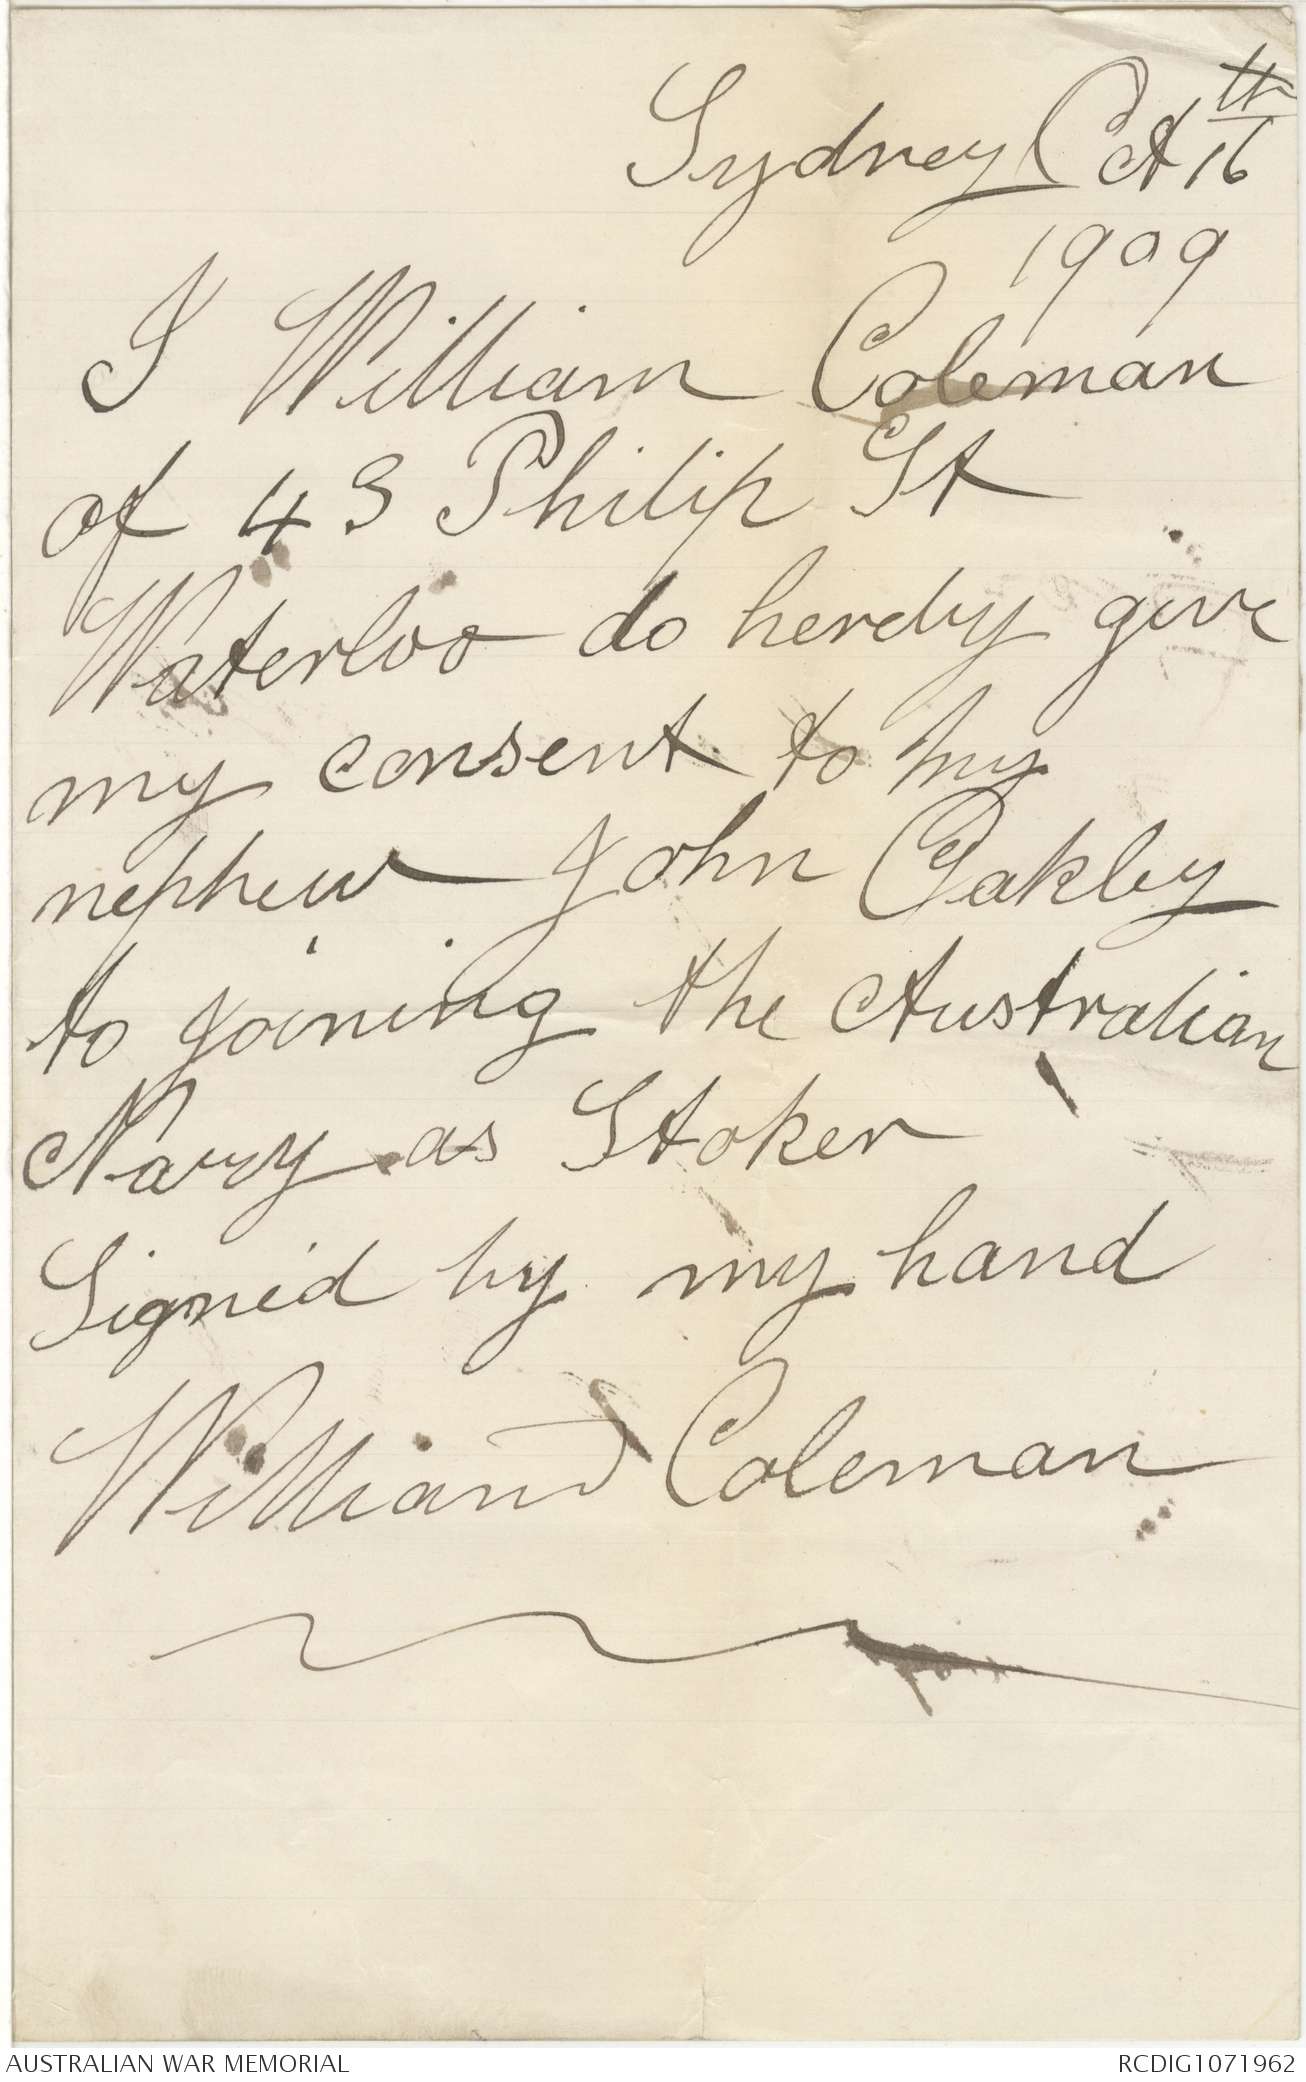 Sydney Oct 16th
1909
I William Coleman
of 43 Philip St
Waterloo do hereby give
my consent to my
nephew John Oakley
to joining the Australian
Navy as Stoker
Signed by my hand
William Coleman
AUSTRALIAN WAR MEMORIAL RCDIG1071962